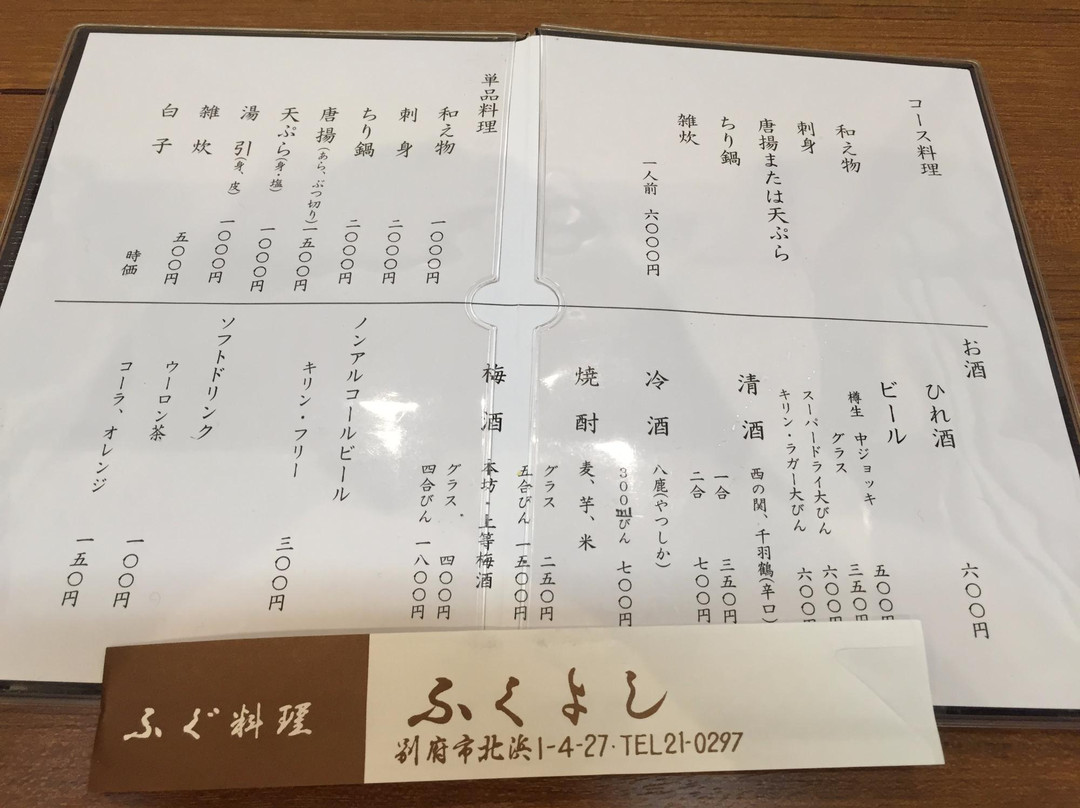 コース料理
和え物
刺身
唐揚または天ぷら
ちり鍋
雑炊
一人前 六〇〇〇円
単品料理
和え物 一〇〇〇円
刺身 二〇〇〇円
ちり鍋 二〇〇〇円
唐揚(あら、ぶつ切り) 一五〇〇円
天ぷら(身・塩) 一〇〇〇円
湯引(身、皮) 一〇〇〇円
雑炊 五〇〇円
白子 時価
お酒
ひれ酒 六〇〇円
ビール
樽生 中ジョッキ 五〇〇円
グラス 三五〇円
スーパードライ大びん 六〇〇円
キリン・ラガー大びん 六〇〇円
清酒 西の関、千羽鶴(辛口)
一合 三五〇円
二合 七〇〇円
冷酒 八鹿(やつしか)
300mlびん 七〇〇円
焼酎 麦、芋、米
グラス 二五〇円
五合びん 一五〇〇円
梅酒 本坊・上等梅酒
グラス 四〇〇円
四合びん 一八〇〇円
ノンアルコールビール
キリン・フリー 三〇〇円
ソフトドリンク
ウーロン茶 一〇〇円
コーラ、オレンジ 一五〇円
ふぐ料理
ふくよし
別府市北浜1-4-27·TEL21-0297